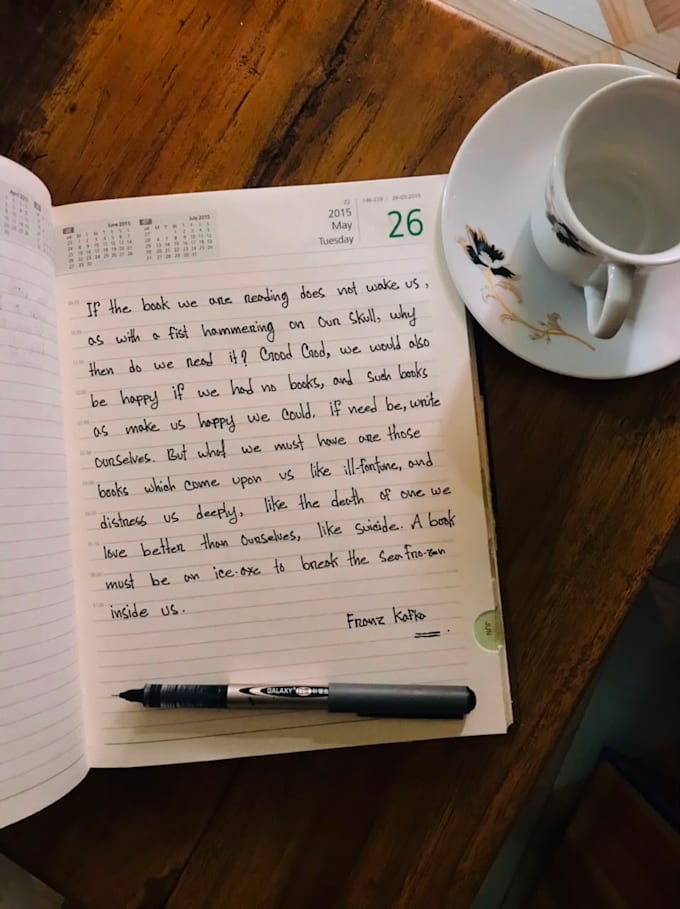 April 2015
June 2015
July 2015
22
146-219 / 26-05-2015
2015
May
Tuesday
26
If the book we are reading does not wake us,
as with a fist hammering on our skull, why
then do we read it? Good God, we would also
be happy if we had no books, and such books
as make us happy we could, if need be, write
ourselves. But what we must have are those
books which come upon us like ill-fortune, and
distress us deeply, like the death of one we
love better than ourselves, like suicide. A book
must be an ice-axe to break the sea fro-zen
inside us.
Franz Kafka
JUN
GALAXY